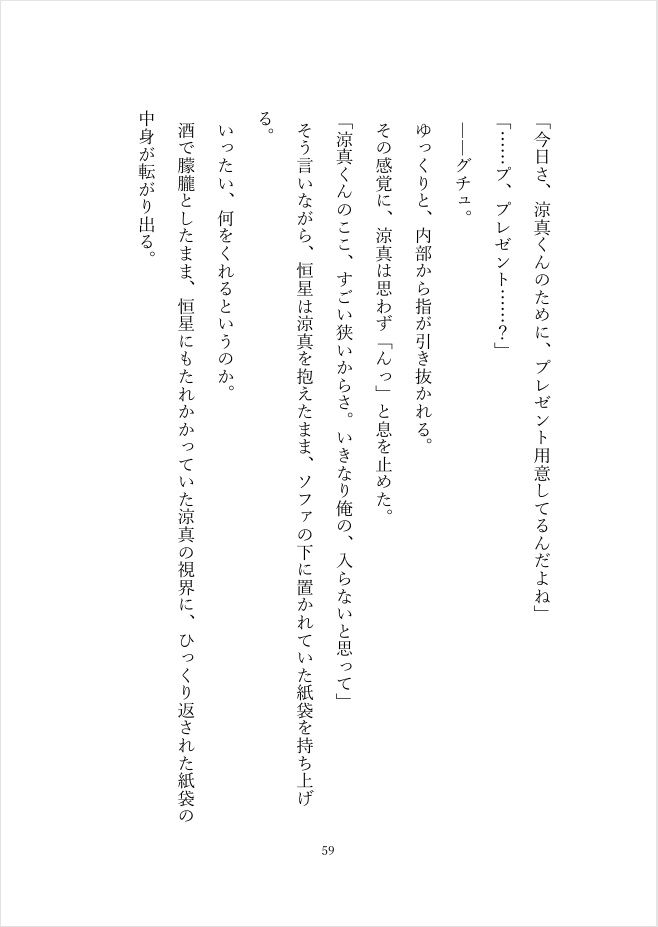 「今日さ、涼真くんのために、プレゼント用意してるんだよね」
「……プ、プレゼント……？」
――グチュ。
ゆっくりと、内部から指が引き抜かれる。
その感覚に、涼真は思わず「んっ」と息を止めた。
「涼真くんのここ、すごい狭いからさ。いきなり俺の、入らないと思って」
そう言いながら、恒星は涼真を抱えたまま、ソファの下に置かれていた紙袋を持ち上げ
る。
いったい、何をくれるというのか。
酒で朦朧としたまま、恒星にもたれかかっていた涼真の視界に、ひっくり返された紙袋の
中身が転がり出る。
59